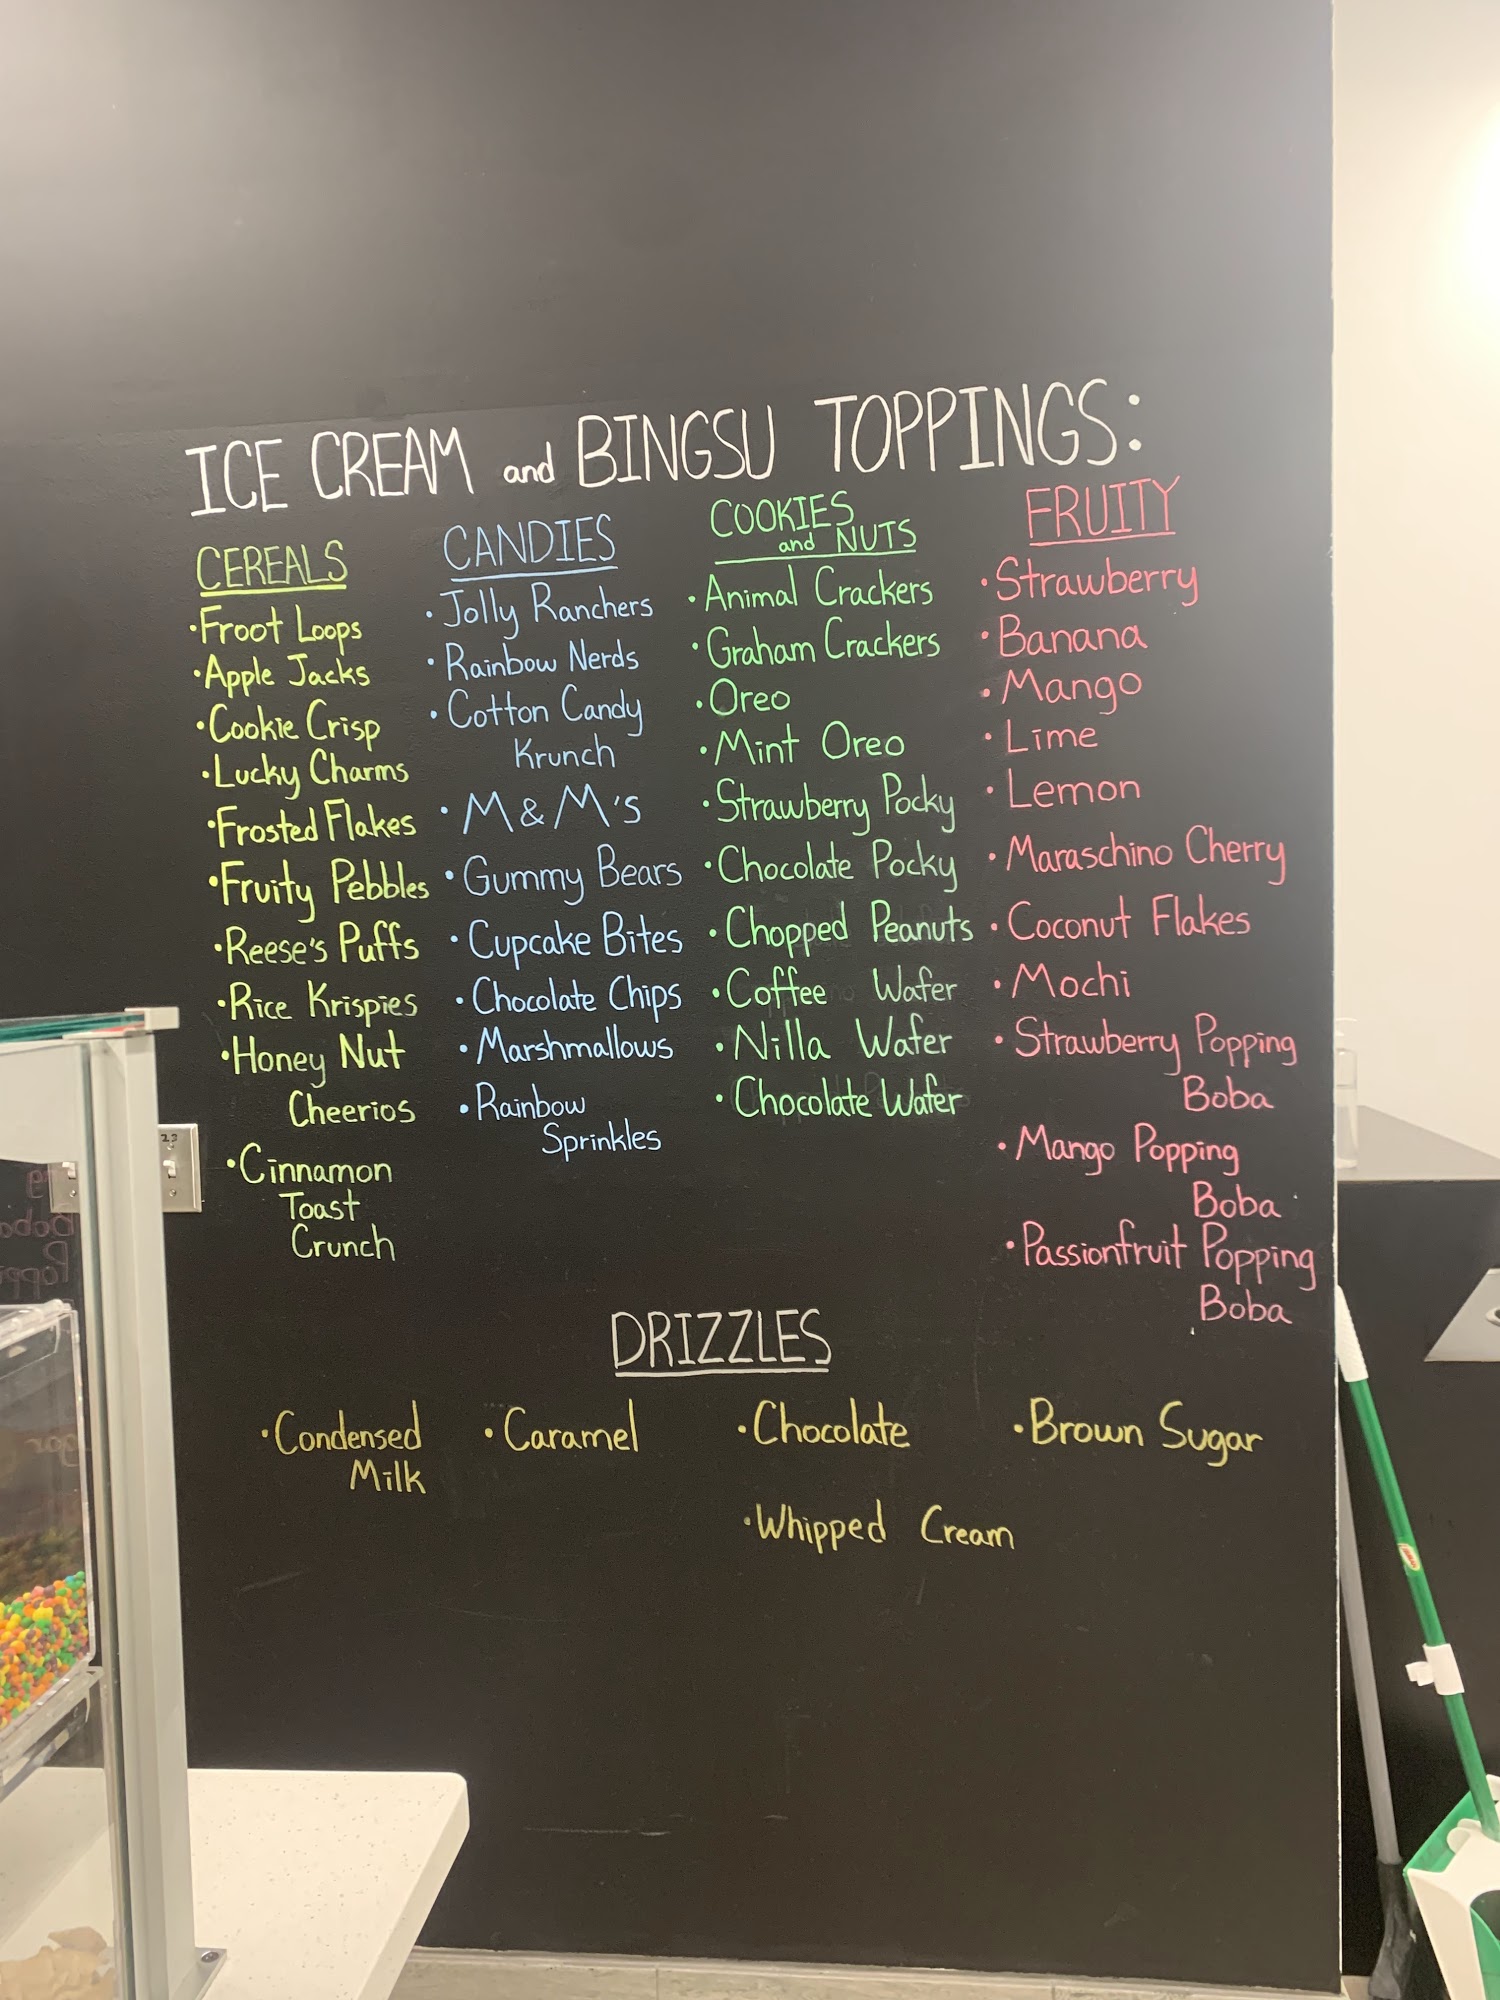 ICE CREAM and BINGSU TOPPINGS:
CEREALS
•Froot Loops
•Apple Jacks
•Cookie Crisp
•Lucky Charms
•Frosted Flakes
•Fruity Pebbles
•Reese's Puffs
•Rice Krispies
•Honey Nut
Cheerios
•Cinnamon
Toast
Crunch
CANDIES
•Jolly Ranchers
•Rainbow Nerds
•Cotton Candy
Krunch
•M&M's
•Gummy Bears
•Cupcake Bites
•Chocolate Chips
•Marshmallows
•Rainbow
Sprinkles
COOKIES
and NUTS
•Animal Crackers
•Graham Crackers
•Oreo
•Mint Oreo
•Strawberry Pocky
•Chocolate Pocky
•Chopped Peanuts
•Coffee Wafer
•Nilla Wafer
•Chocolate Wafer
FRUITY
•Strawberry
•Banana
•Mango
•Lime
•Lemon
•Maraschino Cherry
•Coconut Flakes
•Mochi
•Strawberry Popping
Boba
•Mango Popping
Boba
•Passionfruit Popping
Boba
DRIZZLES
•Condensed
Milk
•Caramel
•Chocolate
•Brown Sugar
•Whipped Cream
23